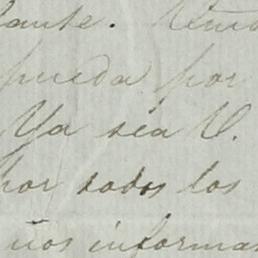 lante.
pueda por
Ya sea V.
por todos los
ños informa